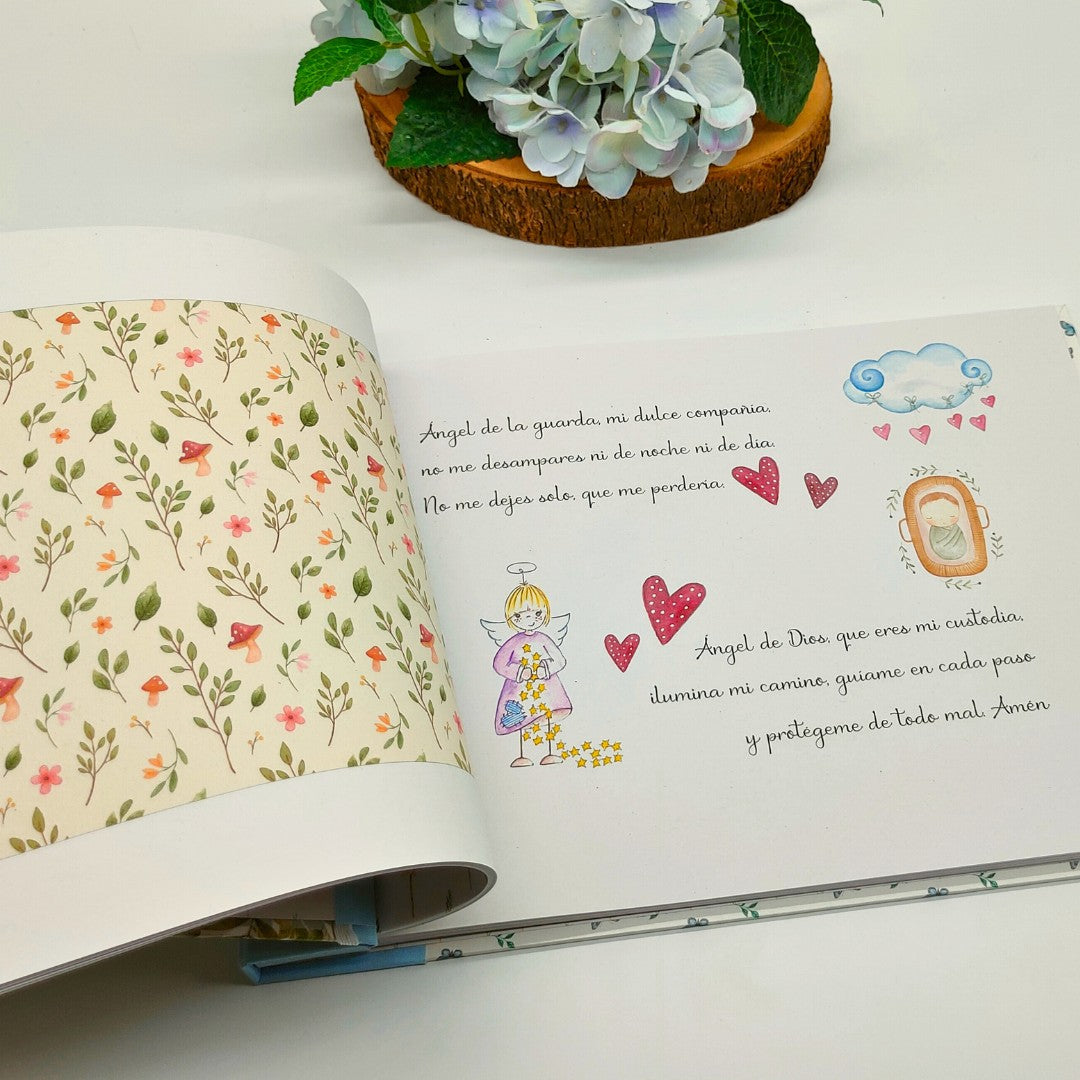 Ángel de la guarda, mi dulce compañia,
no me desampares ni de noche ni de día.
No me dejes solo, que me perdería.
Ángel de Dios, que eres mi custodia,
ilumina mi camino, guíame en cada paso
y protégeme de todo mal. Amén